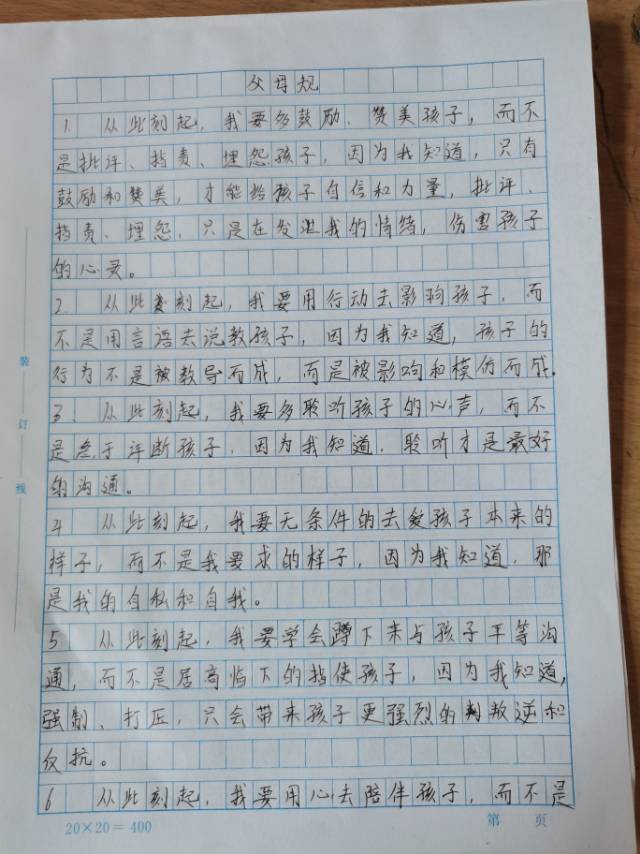 父母规
1. 从此刻起，我要多鼓励、赞美孩子，而不
是批评、指责、埋怨孩子，因为我知道，只有
鼓励和赞美，才能给孩子自信和力量，批评、
指责、埋怨，只是在发泄我的情绪，伤害孩子
的心灵。
2 从此刻起，我要用行动去影响孩子，而
不是用言语去说教孩子，因为我知道，孩子的
行为不是被教导而成，而是被影响和模仿而成.
3. 从此刻起，我要多聆听孩子的心声，而不
是急于评断孩子，因为我知道，聆听才是最好
的沟通。
4 从此刻起，我要无条件的去爱孩子本来的
样子，而不是我要求的样子，因为我知道，那
是我的自私和自我。
5 从此刻起，我要学会蹲下来与孩子平等沟
通，而不是居高临下的指使孩子，因为我知道，
强制、打压，只会带来孩子更强烈的叛逆和
反抗。
6 从此刻起，我要用心去陪伴孩子，而不是
装
订
线
20×20=400
第 页